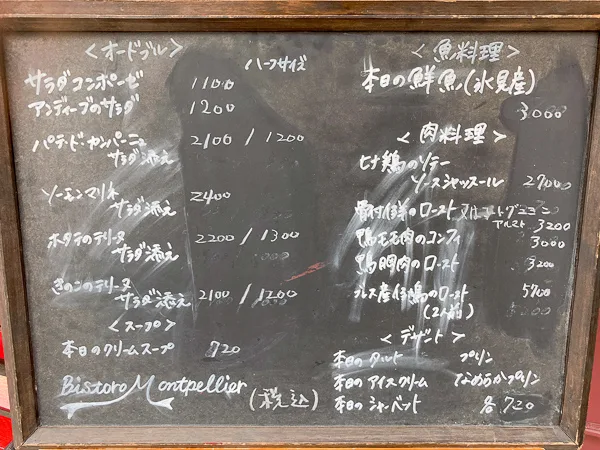 <オードブル>
ハーフサイズ
サラダコンポーゼ 1100
アンディーブのサラダ 1200
パテ・ド・カンパーニュ 2100 / 1200
サラダ添え
ソーモンマリネ 2400
サラダ添え
ホタテのテリーヌ 2200 / 1300
サラダ添え
きのこのテリーヌ 2100 / 1200
サラダ添え
<スープ>
本日のクリームスープ 720
Bistoro Montpellier (税込)
<魚料理>
本日の鮮魚(氷見産)
3000
<肉料理>
ヒナ鶏のソテー
ソースシャッスール
骨付仔羊のロースト
3200
鴨モモ肉のコンフィ 3000
鴨胸肉のロースト 3200
ブレス産仔鶏のロースト 5700
(2人前)
<デザート>
本日のタルト プリン
本日のアイスクリーム なめらかプリン
本日のシャーベット 各720